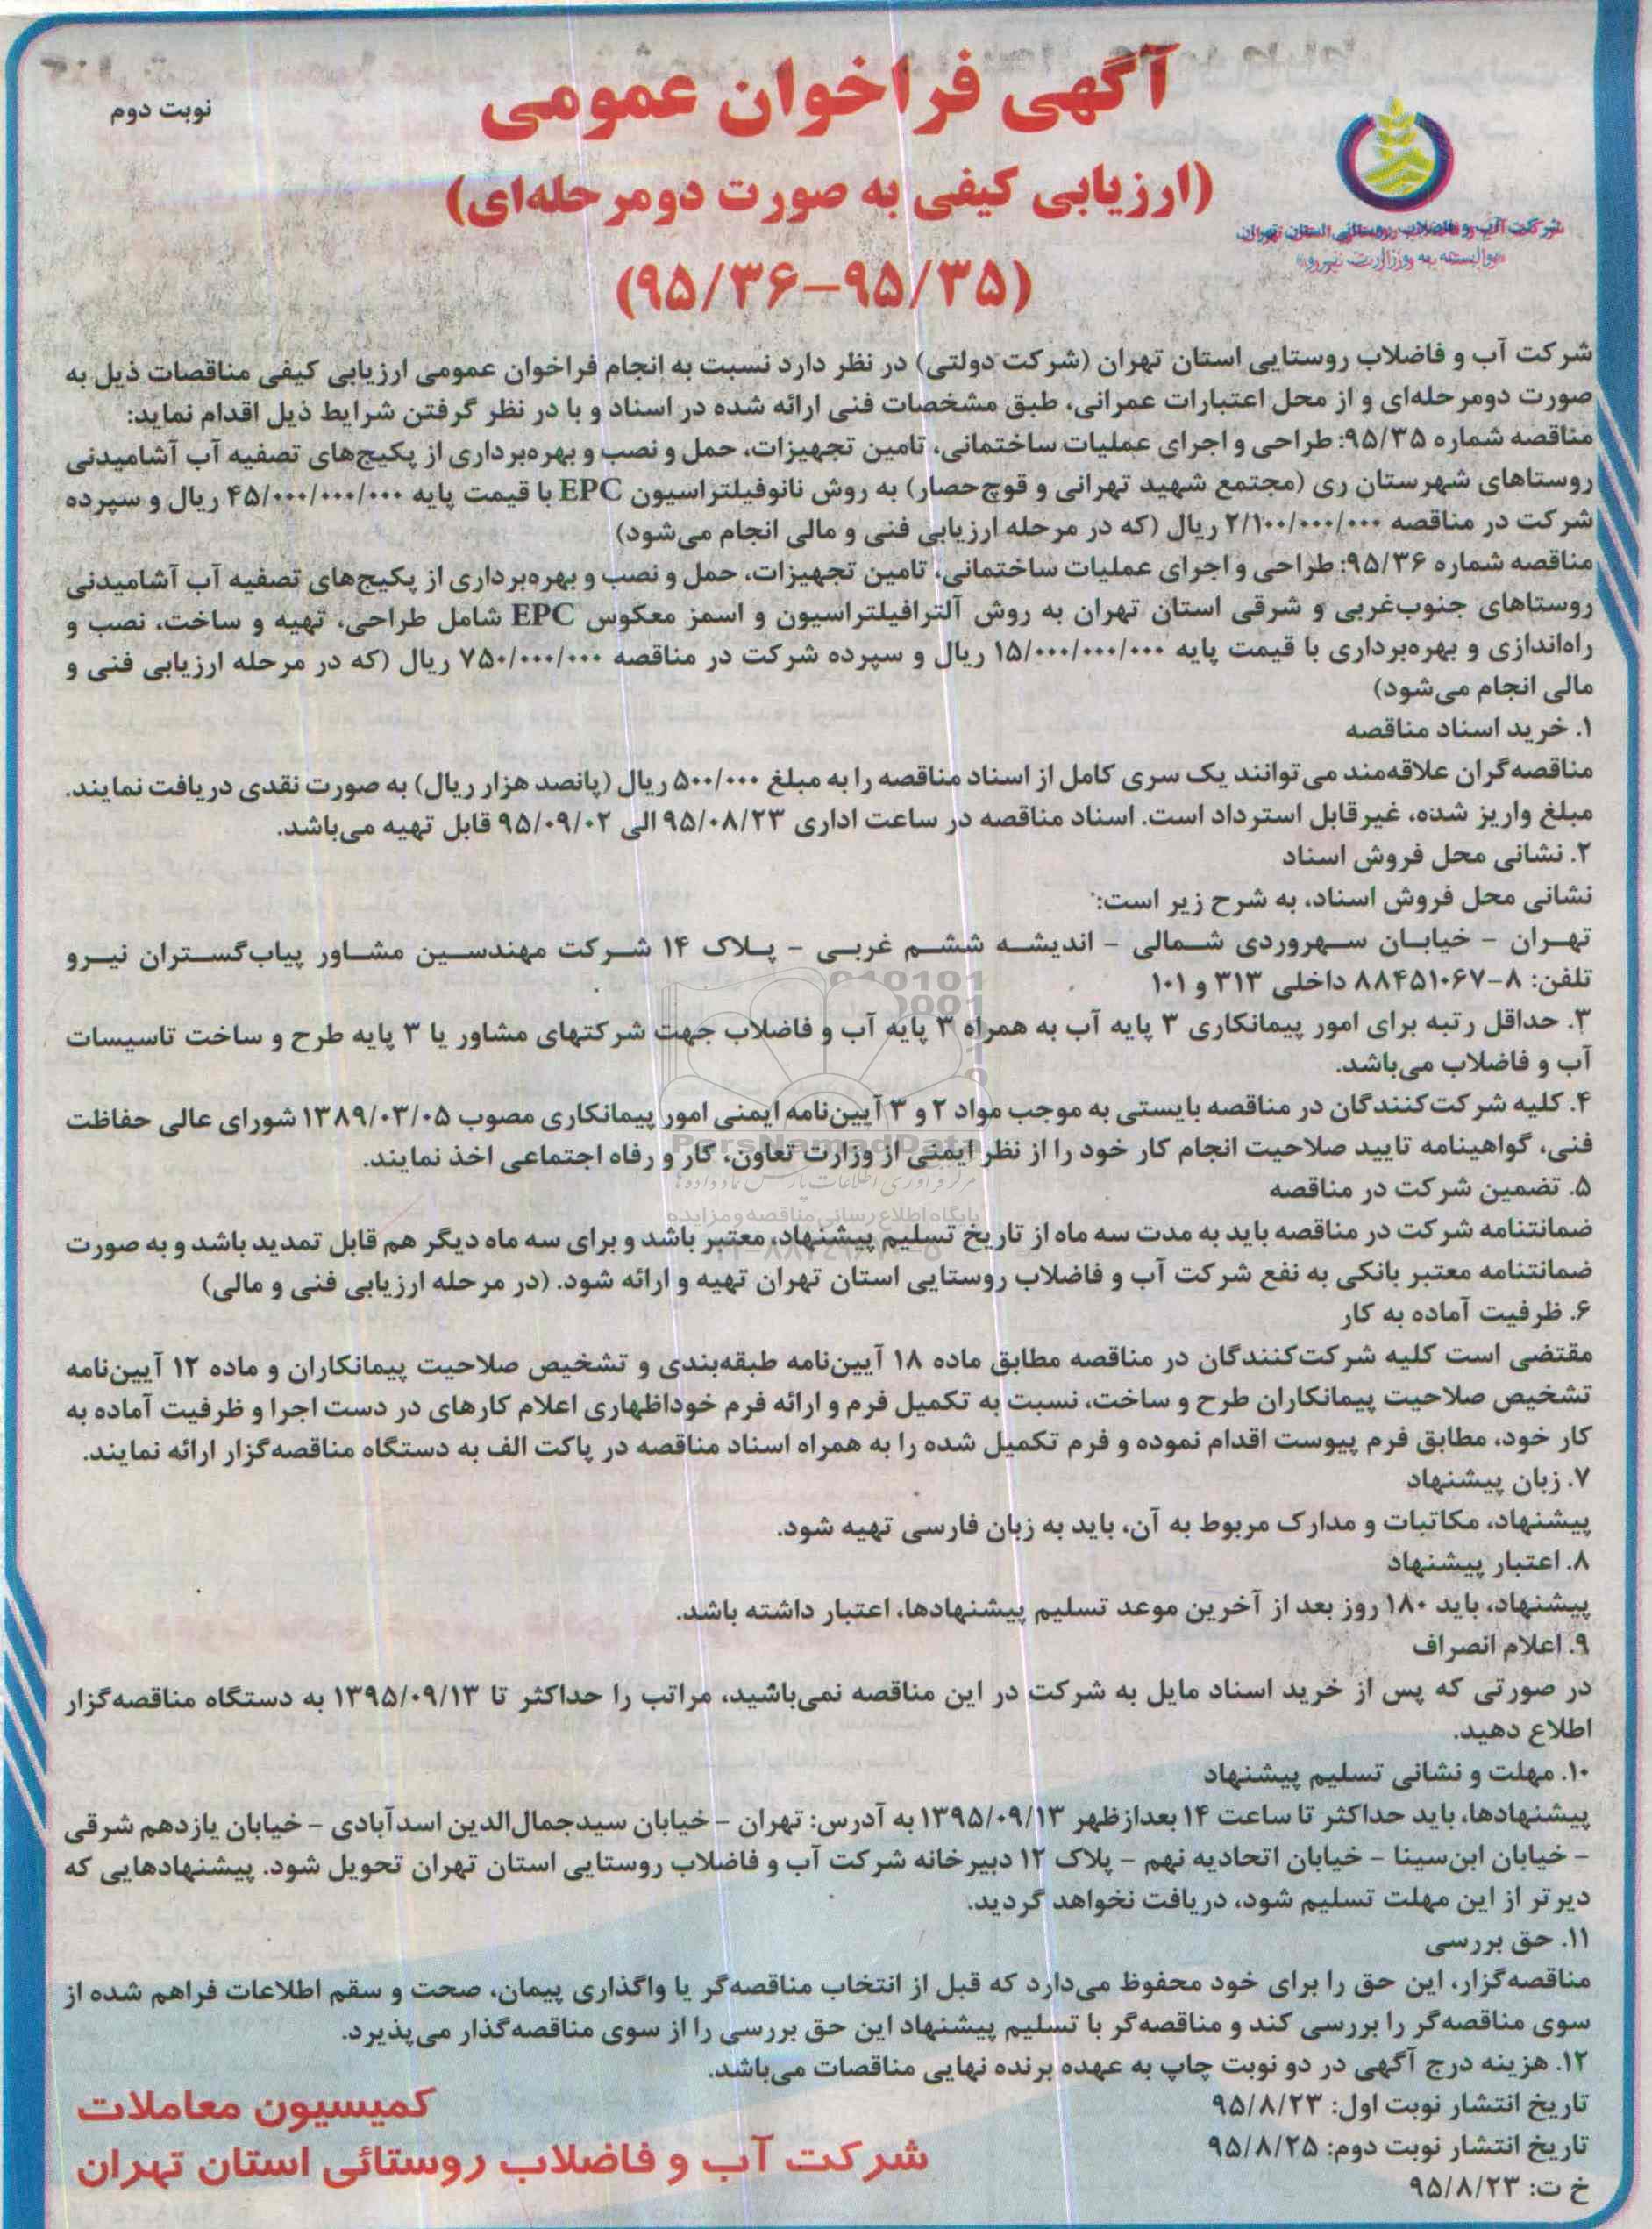 آگهی فراخوان عمومی
نوبت دوم
(ارزیابی کیفی به صورت دومرحله‌ای)
شرکت آب و فاضلاب روستایی استان تهران
«وابسته به وزارت نیرو»
(۹۵/۳۶–۹۵/۳۵)
شرکت آب و فاضلاب روستایی استان تهران (شرکت دولتی) در نظر دارد نسبت به انجام فراخوان عمومی ارزیابی کیفی مناقصات ذیل به
صورت دومرحله‌ای و از محل اعتبارات عمرانی، طبق مشخصات فنی ارائه شده در اسناد و با در نظر گرفتن شرایط ذیل اقدام نماید:
مناقصه شماره ۹۵/۳۵: طراحی و اجرای عملیات ساختمانی، تامین تجهیزات، حمل و نصب و بهره‌برداری از پکیج‌های تصفیه آب آشامیدنی
روستاهای شهرستان ری (مجتمع شهید تهرانی و قوچ‌حصار) به روش نانوفیلتراسیون EPC با قیمت پایه ۴۵/۰۰۰/۰۰۰/۰۰۰ ریال و سپرده
شرکت در مناقصه ۲/۱۰۰/۰۰۰/۰۰۰ ریال (که در مرحله ارزیابی فنی و مالی انجام می‌شود)
مناقصه شماره ۹۵/۳۶: طراحی و اجرای عملیات ساختمانی، تامین تجهیزات، حمل و نصب و بهره‌برداری از پکیج‌های تصفیه آب آشامیدنی
روستاهای جنوب‌غربی و شرقی استان تهران به روش آلترافیلتراسیون و اسمز معکوس EPC شامل طراحی، تهیه و ساخت، نصب و
راه‌اندازی و بهره‌برداری با قیمت پایه ۱۵/۰۰۰/۰۰۰/۰۰۰ ریال و سپرده شرکت در مناقصه ۷۵۰/۰۰۰/۰۰۰ ریال (که در مرحله ارزیابی فنی و
مالی انجام می‌شود)
۱. خرید اسناد مناقصه
مناقصه‌گران علاقه‌مند می‌توانند یک سری کامل از اسناد مناقصه را به مبلغ ۵۰۰/۰۰۰ ریال (پانصد هزار ریال) به صورت نقدی دریافت نمایند.
مبلغ واریز شده، غیرقابل استرداد است. اسناد مناقصه در ساعت اداری ۹۵/۰۸/۲۳ الی ۹۵/۰۹/۰۲ قابل تهیه می‌باشد.
۲. نشانی محل فروش اسناد
نشانی محل فروش اسناد، به شرح زیر است:
تهران – خیابان سهروردی شمالی – اندیشه ششم غربی – پلاک ۱۴ شرکت مهندسین مشاور پیاب‌گستران نیرو
تلفن: ۸–۸۸۴۵۱۰۶۷ داخلی ۳۱۳ و ۱۰۱
۳. حداقل رتبه برای امور پیمانکاری ۳ پایه آب به همراه ۳ پایه آب و فاضلاب جهت شرکتهای مشاور یا ۳ پایه طرح و ساخت تاسیسات
آب و فاضلاب می‌باشد.
۴. کلیه شرکت‌کنندگان در مناقصه بایستی به موجب مواد ۲ و ۳ آیین‌نامه ایمنی امور پیمانکاری مصوب ۱۳۸۹/۰۳/۰۵ شورای عالی حفاظت
فنی، گواهینامه تایید صلاحیت انجام کار خود را از نظر ایمنی از وزارت تعاون، کار و رفاه اجتماعی اخذ نمایند.
ParsNamadData
مرکز فرآوری اطلاعات پارس نماد داده‌ها
۵. تضمین شرکت در مناقصه
پایگاه اطلاع رسانی مناقصه و مزایده
ضمانتنامه شرکت در مناقصه باید به مدت سه ماه از تاریخ تسلیم پیشنهاد، معتبر باشد و برای سه ماه دیگر هم قابل تمدید باشد و به صورت
ضمانتنامه معتبر بانکی به نفع شرکت آب و فاضلاب روستایی استان تهران تهیه و ارائه شود. (در مرحله ارزیابی فنی و مالی)
۶. ظرفیت آماده به کار
مقتضی است کلیه شرکت‌کنندگان در مناقصه مطابق ماده ۱۸ آیین‌نامه طبقه‌بندی و تشخیص صلاحیت پیمانکاران و ماده ۱۲ آیین‌نامه
تشخیص صلاحیت پیمانکاران طرح و ساخت، نسبت به تکمیل فرم و ارائه فرم خوداظهاری اعلام کارهای در دست اجرا و ظرفیت آماده به
کار خود، مطابق فرم پیوست اقدام نموده و فرم تکمیل شده را به همراه اسناد مناقصه در پاکت الف به دستگاه مناقصه‌گزار ارائه نمایند.
۷. زبان پیشنهاد
پیشنهاد، مکاتبات و مدارک مربوط به آن، باید به زبان فارسی تهیه شود.
۸. اعتبار پیشنهاد
پیشنهاد، باید ۱۸۰ روز بعد از آخرین موعد تسلیم پیشنهادها، اعتبار داشته باشد.
۹. اعلام انصراف
در صورتی که پس از خرید اسناد مایل به شرکت در این مناقصه نمی‌باشید، مراتب را حداکثر تا ۱۳۹۵/۰۹/۱۳ به دستگاه مناقصه‌گزار
اطلاع دهید.
۱۰. مهلت و نشانی تسلیم پیشنهاد
پیشنهادها، باید حداکثر تا ساعت ۱۴ بعدازظهر ۱۳۹۵/۰۹/۱۳ به آدرس: تهران – خیابان سیدجمال‌الدین اسدآبادی – خیابان یازدهم شرقی
– خیابان ابن‌سینا – خیابان اتحادیه نهم – پلاک ۱۲ دبیرخانه شرکت آب و فاضلاب روستایی استان تهران تحویل شود. پیشنهادهایی که
دیرتر از این مهلت تسلیم شود، دریافت نخواهد گردید.
۱۱. حق بررسی
مناقصه‌گزار، این حق را برای خود محفوظ می‌دارد که قبل از انتخاب مناقصه‌گر یا واگذاری پیمان، صحت و سقم اطلاعات فراهم شده از
سوی مناقصه‌گر را بررسی کند و مناقصه‌گر با تسلیم پیشنهاد این حق بررسی را از سوی مناقصه‌گذار می‌پذیرد.
۱۲. هزینه درج آگهی در دو نوبت چاپ به عهده برنده نهایی مناقصات می‌باشد.
تاریخ انتشار نوبت اول: ۹۵/۸/۲۳
تاریخ انتشار نوبت دوم: ۹۵/۸/۲۵
خ ت: ۹۵/۸/۲۳
کمیسیون معاملات
شرکت آب و فاضلاب روستائی استان تهران